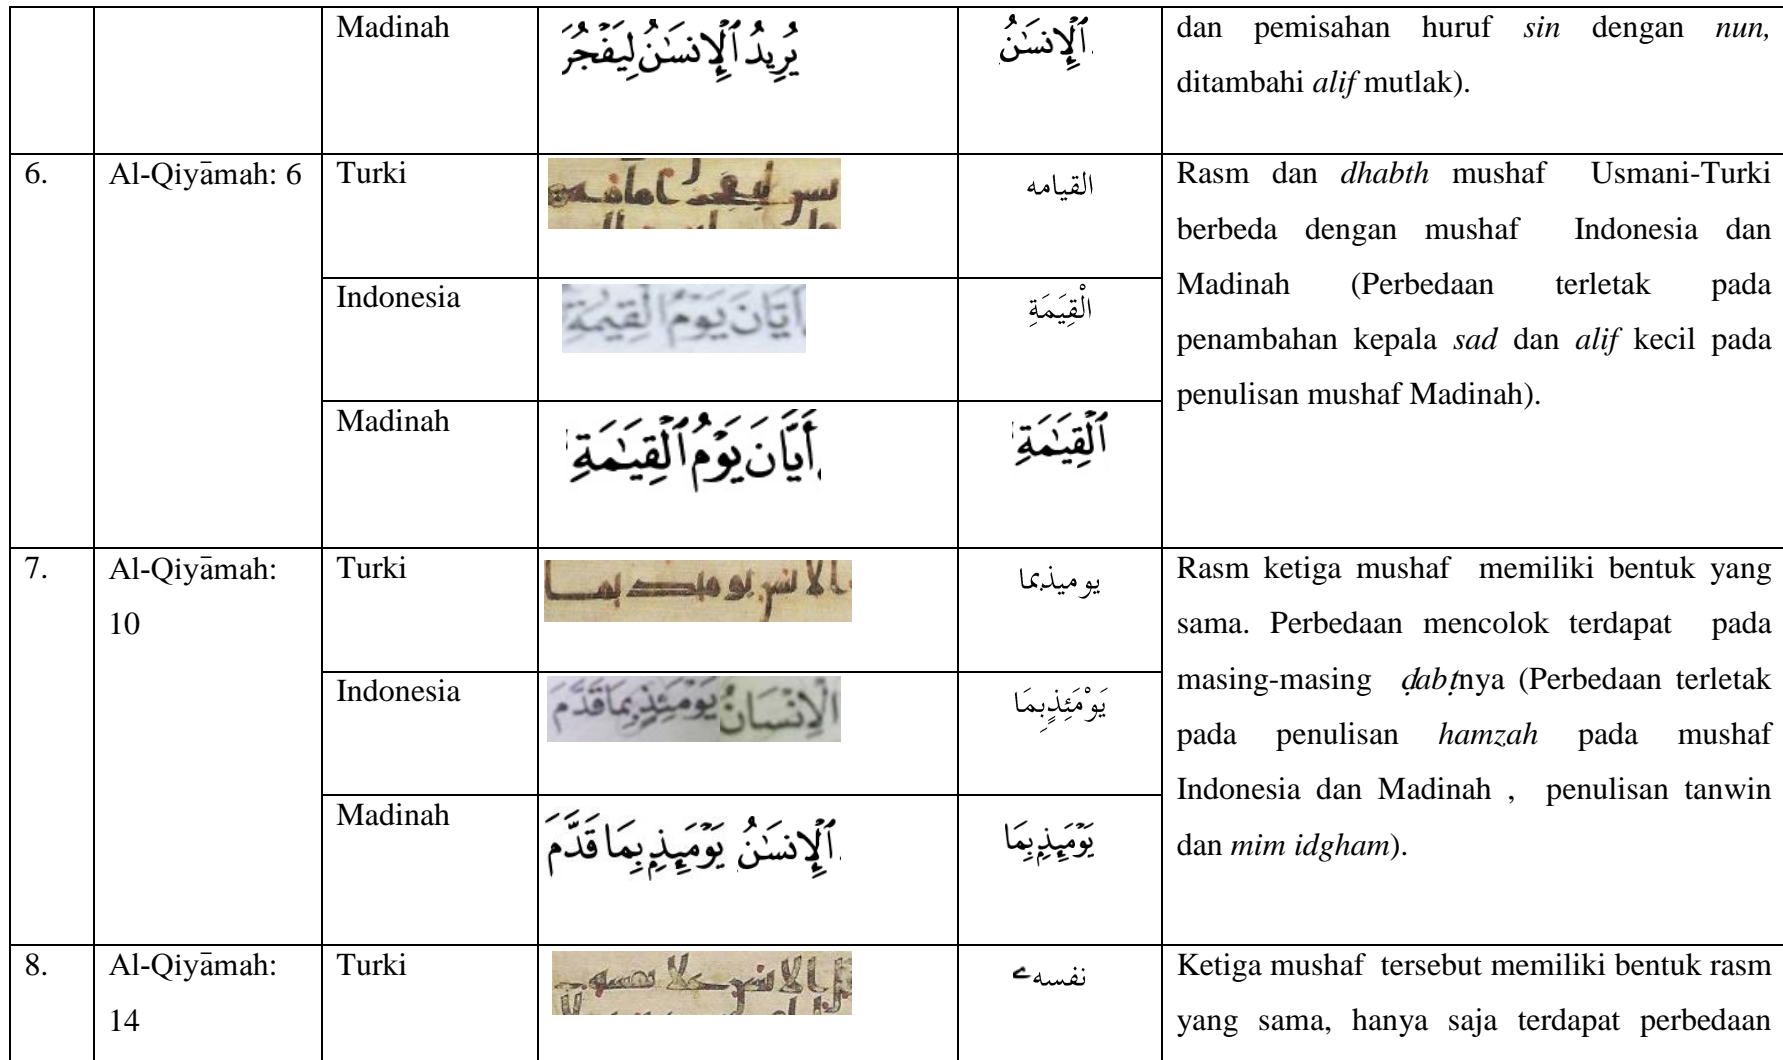 Madinah
يُرِيدُ ٱلْإِنسَٰنُ لِيَفْجُرَ
ٱلْإِنسَٰنُ
dan pemisahan huruf sin dengan nun,
ditambahi alif mutlak).
6.
Al-Qiyāmah: 6
Turki
القيامه
Rasm dan dhabth mushaf Usmani-Turki
berbeda dengan mushaf Indonesia dan
Madinah (Perbedaan terletak pada
penambahan kepala sad dan alif kecil pada
penulisan mushaf Madinah).
Indonesia
اَيَّانَ يَوْمُ الْقِيٰمَةِ
الْقِيَمَةِ
Madinah
أَيَّانَ يَوْمُ ٱلْقِيَٰمَةِ
ٱلْقِيَٰمَةِ
7.
Al-Qiyāmah:
10
Turki
يوميذبما
Rasm ketiga mushaf memiliki bentuk yang
sama. Perbedaan mencolok terdapat pada
masing-masing ḍabṭnya (Perbedaan terletak
pada penulisan hamzah pada mushaf
Indonesia dan Madinah , penulisan tanwin
dan mim idgham).
Indonesia
الْاِنْسَانُ يَوْمَئِذٍۢ بِمَا قَدَّمَ
يَوْمَئِذٍبِمَا
Madinah
ٱلْإِنسَٰنُ يَوْمَئِذِۭ بِمَا قَدَّمَ
يَوْمَئِذِۭ بِمَا
8.
Al-Qiyāmah:
14
Turki
نفسهے
Ketiga mushaf tersebut memiliki bentuk rasm
yang sama, hanya saja terdapat perbedaan